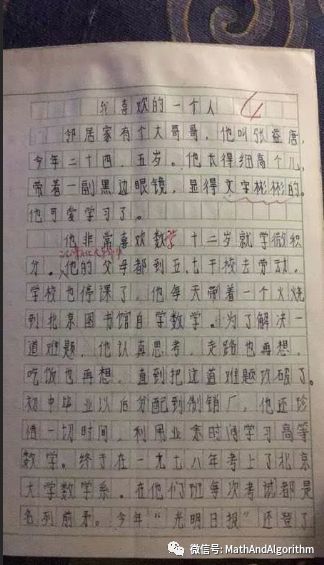 我喜欢的一个人
邻居家有个大哥哥。他叫张益唐,
今年二十四、五岁。他长得细高个儿,
带着一副黑边眼镜,显得文字彬彬的。
他可爱学习了。
他非常喜欢数学 十二岁就学微积
分。他的父母都到五七干校去劳动。
学校也停课了,他每天带着一个火烧
到北京图书馆自学数学。为了解决一
道难题,他认真思考,走路也再想,
吃饭也再想,直到把这道难题攻破了。
初中毕业以后分配到制锁厂,他还珍
惜一切时间,利用业余时间学习高等
数学。终于在一九七八年考上了北京
大学数学系。在他们班每次考试都是
名列前茅。今年“光明日报”还登了
微信号: MathAndAlgorithm